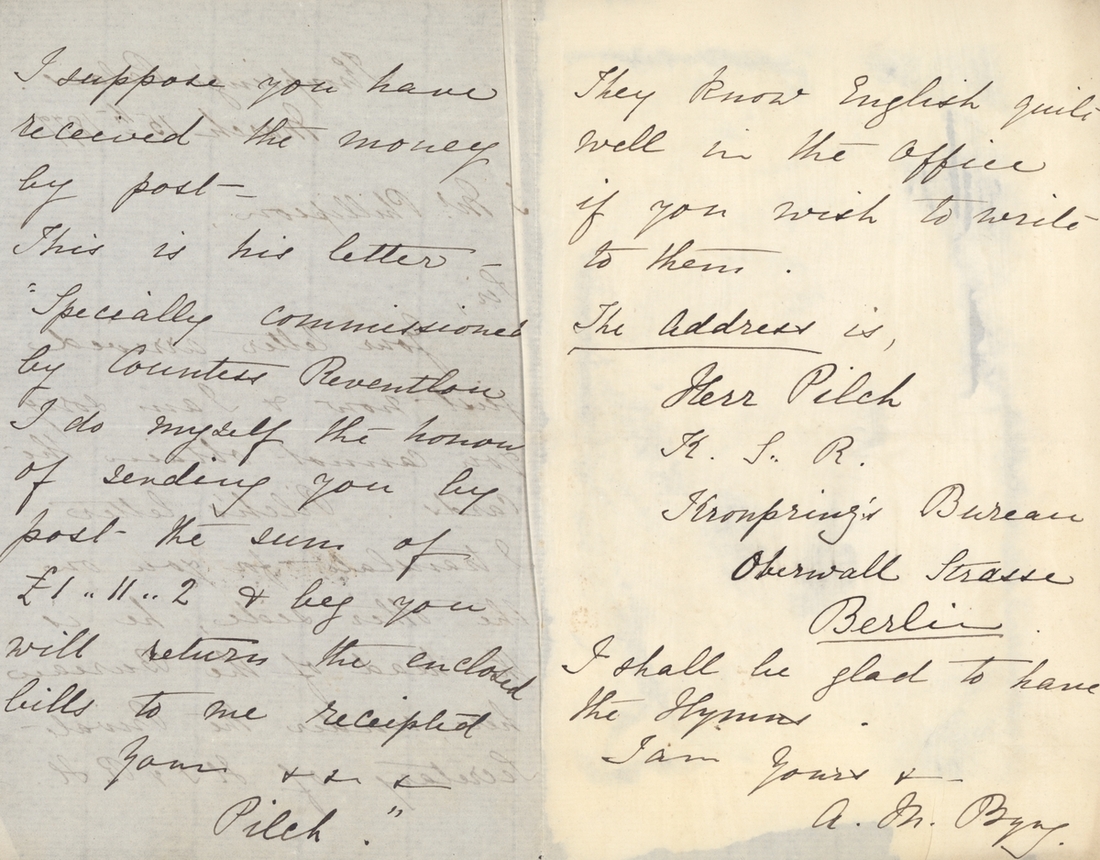 I suppose you have
received the money
by post —
This is his letter —
"Specially commissioned
by Countess Reventlow
I do myself the honour
of sending you by
post the sum of
£1 .. 11 .. 2 & beg you
will return the enclosed
bills to me receipted
Yours & & &
Pilch."
They know English quite
well in the Office
if you wish to write
to them.
The Address is,
Herr Pilch
K. S. R.
Kronpring's Bureau
Oberwall Strasse
Berlin.
I shall be glad to have
the Hymns.
I am Yours &—
A. M. Byng.